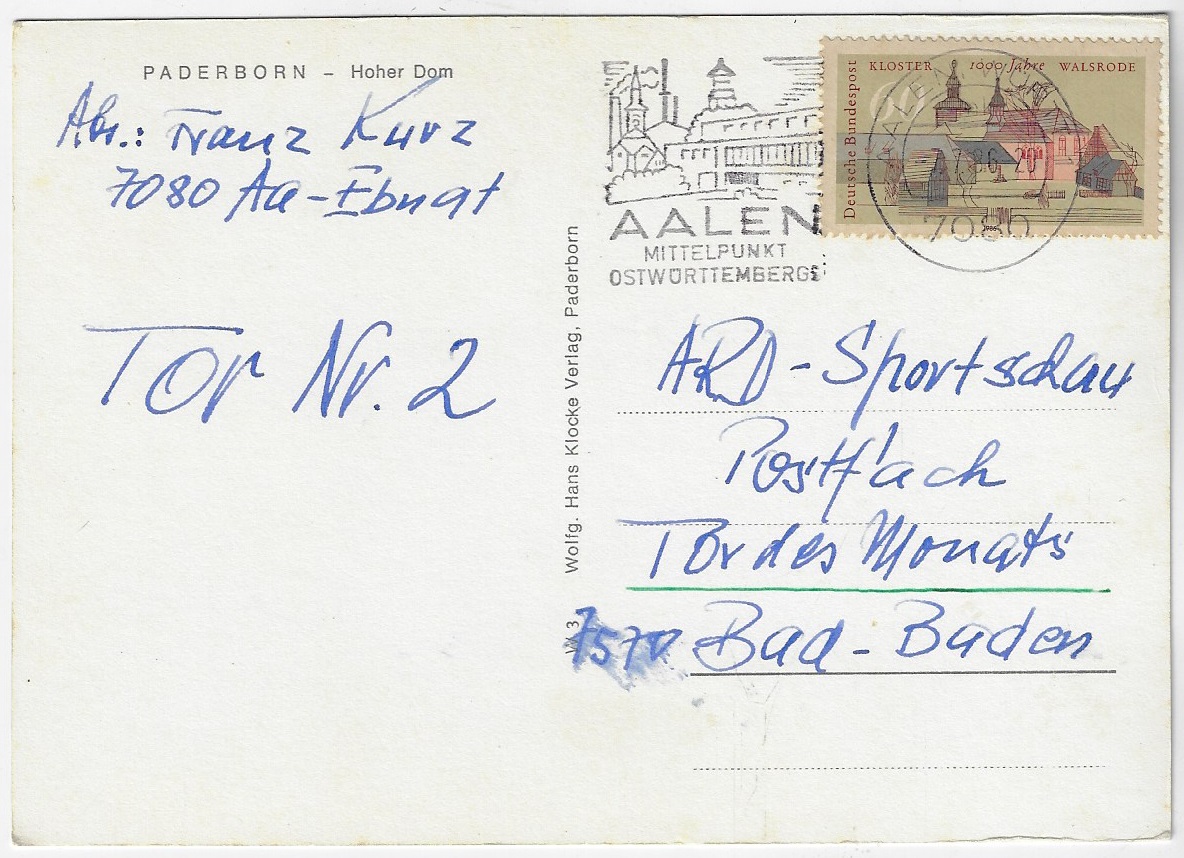 PADERBORN – Hoher Dom
Abs.: Franz Kurz
7080 Aa-Ebnat
Tor Nr. 2
Wolfg. Hans Klocke Verlag, Paderborn
AALEN
MITTELPUNKT
OSTWÜRTTEMBERGS
7080
Deutsche Bundespost
KLOSTER 1000 Jahre WALSRODE
60
1986
ARD-Sportschau
Postfach
Tor des Monats
7570 Bad-Baden